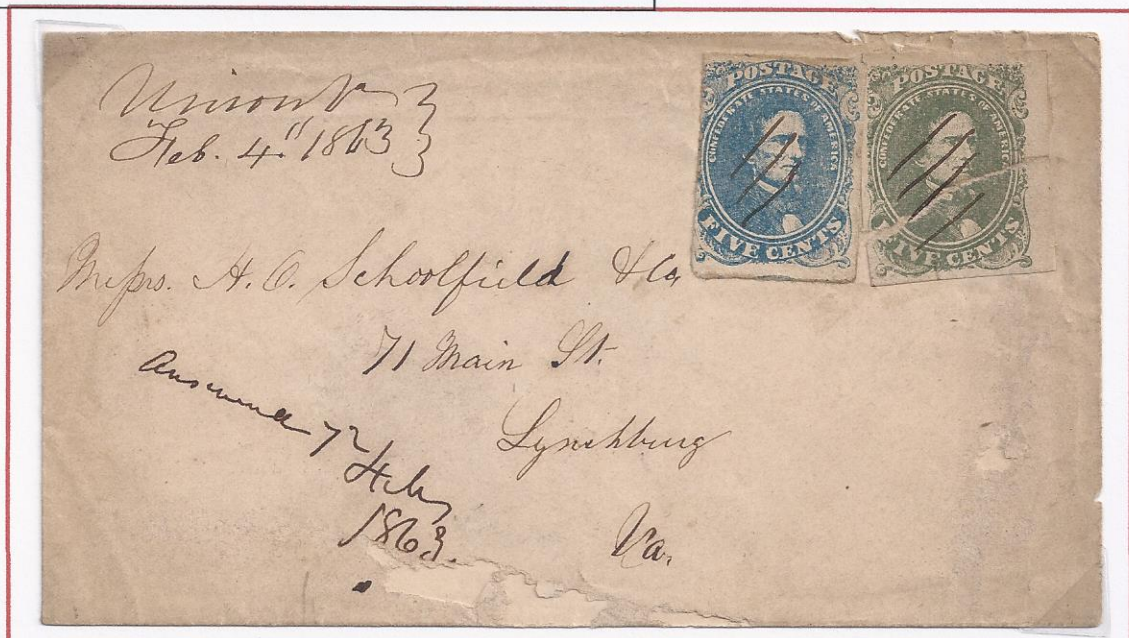 Union Va
Feb. 4" 1863
POSTAGE
CONFEDERATE STATES OF AMERICA
FIVE CENTS
POSTAGE
CONFEDERATE STATES OF AMERICA
FIVE CENTS
Messrs. H. C. Schoolfield & Co
71 Main St.
Lynchburg
Va.
Answered 7th
Feby
1863.